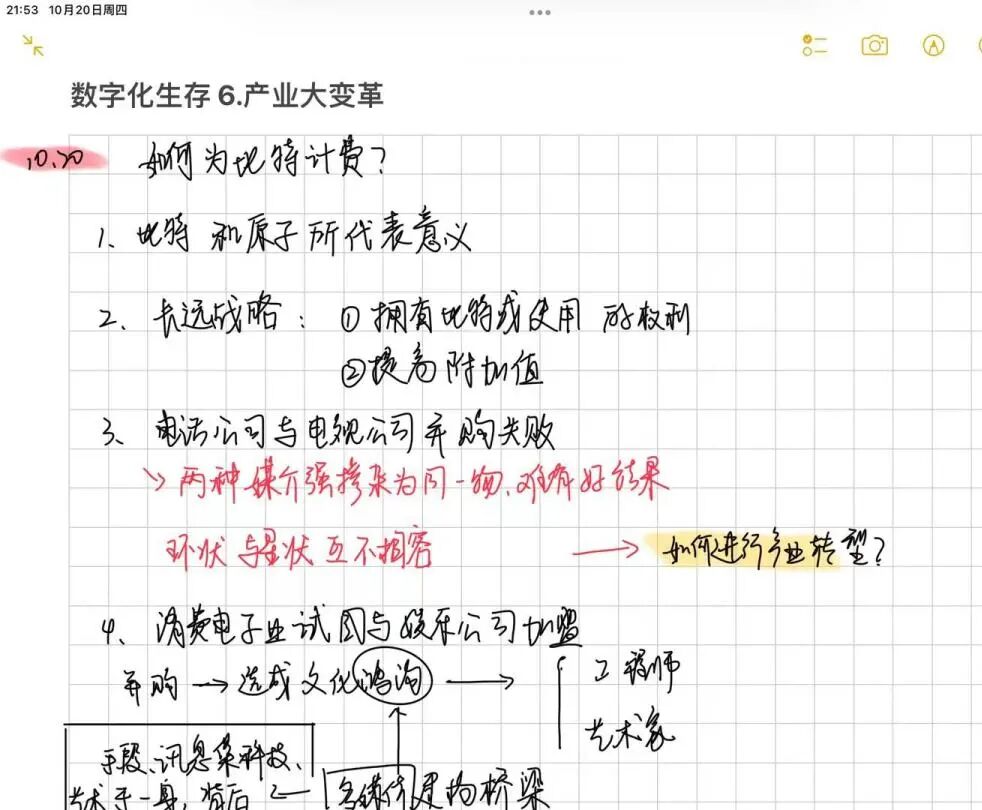 21:53 10月20日周四
数字化生存 6.产业大变革
10.20 如何为比特计费?
1、比特和原子所代表意义
2、长远战略:①拥有比特或使用的权利
②提高附加值
3、电话公司与电视公司并购失败
↘两种媒介强掺杂为同一物、难有好结果
环状与星状互不相容 → 如何进行产业转型?
4、消费电子业试图与娱乐公司加盟
并购→造成文化鸿沟→ 工程师
艺术家
手段、讯息集科技、
艺术于一身,背后 ← 多媒体是构桥梁